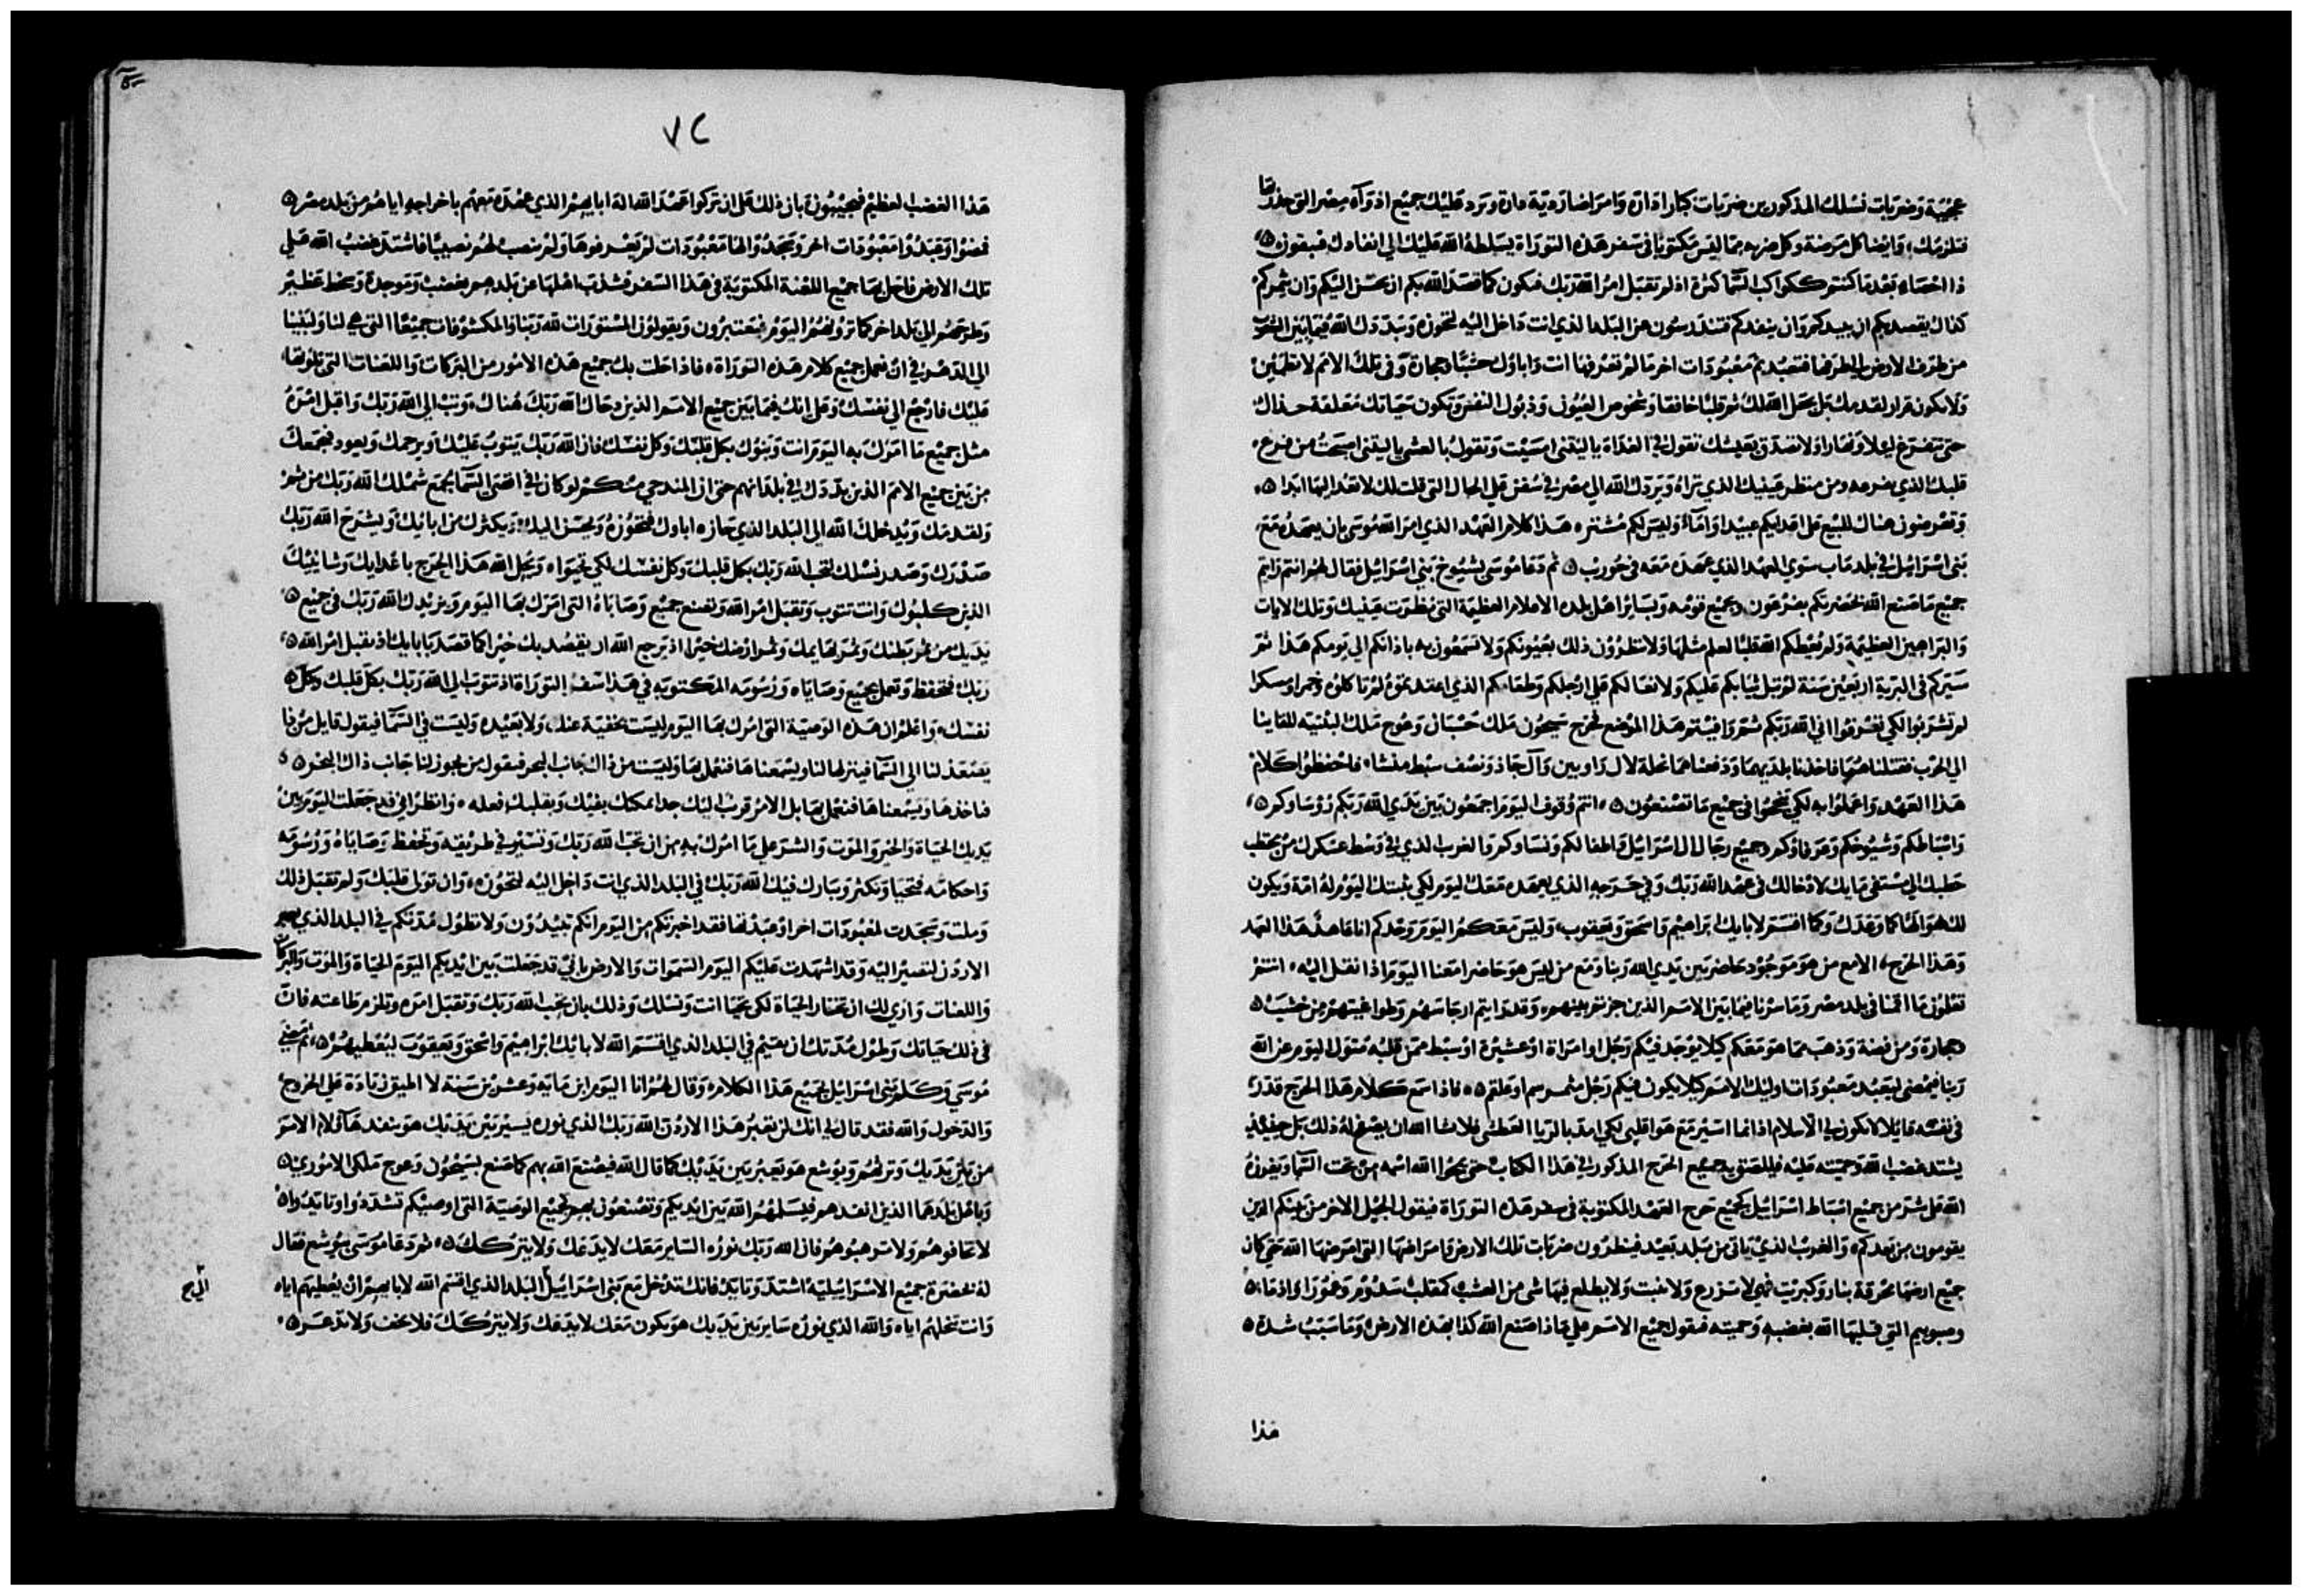 عجيبة وضربات نسلك المذكورين ضربات كبارا دارة وامراضا ردية دارة ويرد عليك جميع ادوآء مصر التى حذرتها
فتلزمك، وايضا كل مرضة وكل ضربه مما ليس مكتوبا في سفر هذه التوراة يسلطه الله عليك الي انفادك فيبقون
ذا احصاء بعد ما كنتم ككواكب السّما كثرة اذ لم تقبل امر الله ربك فيكون كما قصد الله بكم ان يحسن اليكم وان يثمركم
كذاك يقصد بكم ان يبيدكم وان ينفدكم فتندرسون من البلد الذي انت داخل اليه لتحوزه ويبددك الله فيما بين الشعوب
من طرف الارض الي طرفها فتعبد ثم معبودات اخر ما لم تعرفها انت واباوك خشبا وحجارة وفى تلك الامم لا تطمين
ولا يكون قرار لقدمك بل يجعل الله لك ثم قلبا خافقا وشخوص العيون وذبول النفس وتكون حياتك معلقة حذاك
حتى تتفزع ليلا ونهارا ولا تصدق بعيشك تقول في الغداة يا ليتنى امسيت وتقول بالعشي يا ليتنى اصبحت من فزع
قلبك الذي يفزعه ومن منظر عينيك الذي تراه ويردك الله الي مصر في سفن علي الحال التى قلت لك لا تعد اليها ابدا
وتعرضون هناك للبيع على اعدايكم عبيدا واماء وليس لكم مشتر هذا كلام العهد الذي امر الله موسى بان يعهده مع
بنى اسرائيل في بلد ماب سوي العهد الذي عهده معه فى حوريب ثم دعا موسى بشيوخ بني اسرائيل فقال لهم انتم رايتم
جميع ما صنع الله بحضرتكم بفرعون وبجميع قومه وبساير اهل بلده الاعلام العظيمة التى نظرت عينيك وتلك الايات
والبراهين العظيمة ولم يعطكم الله قلبا لعلم مثلها ولا تنظرون ذلك بعيونكم ولا تسمعون به باذانكم الي يومكم هذا ثم
سيركم فى البرية اربعين سنة لم تبل ثيابكم عليكم ولا نعالكم علي ارجلكم وطعامكم الذي اعتدتموه لم تاكلوه وخمرا ومسكرا
لم تشربوا لكي تعرفوا اني الله ربكم ثم وافيتم هذا الموضع فخرج سيحون ملك حسبان وعوج ملك البثنيه للقاينا
الي الحرب فقتلناهما فاخذنا بلديهما ودفعناهما نحلة لال راوبين وآل جاد ونصف سبط منشا فاحفظوا كلام
هذا العهد واعملوا به لكي تنجحوا فى جميع ما تصنعون انتم وقوف اليوم اجمعون بين يدي الله ربكم رؤساوكم
واسباطكم وشيوخكم وعرفاؤكم وجميع رجال ال اسرائيل واطفالكم ونساوكم والغريب الذي في وسط عسكرك من محتطب
حطبك الي مستقى مايك لادخالك فى عهد الله ربك وفي حرجه الذي يعهده معك اليوم لكي يثبتك اليوم له امة ويكون
لك هو الها كما وعدك وكما اقسم لابايك ابراهيم واسحق ويعقوب وليس معكم اليوم وحدكم انا عاهد هذا العهد
وهذا الحرج الا مع من هو موجود حاضر بين يدي الله ربنا ومع من ليس هو حاضرا معنا اليوم اذا نقل اليه انتم
تعلمون ما اقمنا في بلد مصر وما سرنا فيما بين الامم الذين جزتم بينهم وقد رايتم ارجاسهم وطواغيتهم من خشب
وحجارة ومن فضة وذهب مما هو معكم كيلا يوجد فيكم رجل او امراة او عشيرة او سبط ممن قلبه متول اليوم عن الله
ربنا فيمضى ليعبد معبودات اوليك الامم كيلا يكون فيكم رجل مثمر سم او علقم فاذا سمع كلام هذا الحرج قدر
يشتد غضب الله وحميته عليه فيلصق به جميع الحرج المذكور في هذا الكتاب حتى يمحوا الله اسمه من تحت السّما ويفرزه
الله علي شر من جميع اسباط اسرائيل بجميع حرج العهد المكتوبة فى سفر هذه التوراة فيقول الجيل الاخر من بنيكم الذين
يقومون من بعدكم والغريب الذي ياتى من بلد بعيد فينظرون ضربات تلك الارض وامراضها التى امرضها الله حتى كان
جميع ارضها محرقة بنار وكبريت فهى لا تزرع ولا تنبت ولا يطلع فيها شى من العشب كمقلب سدوم وغمورا وادما
وصبوييم التي قلبها الله بغضبه وحميته فيقول جميع الامم علي ماذا صنع الله كذا بهذه الارض وما سبب شدة
هذا
٧٢
هذا الغضب العظيم فيجيبون بان ذلك علي ان تركوا عهد الله اله ابايهم الذي عهده معهم باخراجه اياهم من بلد مصر
فمضوا وعبدوا معبودات اخر وسجدوا لها معبودات لم يعرفوها ولم ينصب لهم نصيبا فاشتد غضب الله علي
تلك الارض فاحل بها جميع اللعنة المكتوبة فى هذا السفر فشذب اهلها عن بلدهم بغضب وموجدة وسخط عظيم
وطرحهم الي بلد اخر كما ترونهم اليوم فيعتبرون ويقولون المستورات لله ربنا والمكشوفات جميعا التى هي لنا ولبنينا
الي الدهر في ان نعمل جميع كلام هذه التوراة فاذا حلت بك جميع هذه الامور من البركات واللعنات التى تلوتها
عليك فارجع الي نفسك وعلي انك فيما بين جميع الامم الذين دحاك الله ربك هناك وتب الي الله ربك واقبل امره
مثل جميع ما امرك به اليوم انت وبنوك بكل قلبك وكل نفسك فان الله ربك يتوب عليك ويرحمك ويعود فيجمعك
من بين جميع الامم الذين بددك في بلدانهم حتى ان المندحي منكم لو كان في اقصى السّما يجمع شملك الله ربك من ثم
ولقدمك ويدخلك الله الي البلد الذي حازه اباوك فتحوزه ويحسن اليك ويكثرك من ابايك ويشرح الله ربك
صدرك وصدر نسلك لتحب الله ربك بكل قلبك وكل نفسك لكي تحيوا ويحل الله هذا الحرج باعدايك وشانييك
الذين كلبوك وانت تتوب وتقبل امر الله وتصنع جميع وصاياه التى امرك بها اليوم ويزيدك الله ربك فى جميع
يديك من ثمر بطنك وثمر بهايمك وثمر ارضك خيرا اذ يرجع الله ان يقصد بك خيرا كما قصد بابايك اذ تقبل امر الله
ربك فتحفظ وتعمل بجميع وصاياه ورسومه المكتوبه في هذا سفر التوراة اذ تتوب الي الله ربك بكل قلبك وكل
نفسك واعلم ان هذه الوصية التى امرك بها اليوم ليست بخفية عنك ولا بعيده وليست في السّما فيقول قايل من ذا
يصعد لنا الي السّما فينزلها لنا ويسمعنا ها فنعمل بها وليست من ذاك جانب البحر فيقول من يجوز لنا جانب ذاك البحر
فياخذها ويسمعناها فنعمل بها بل الامر قريب اليك جدا يمكنك بفيك وبقلبك فعله وانظر اني قد جعلت اليوم بين
يديك الحياة والخير والموت والشر علي ما امرك به من ان تحب الله ربك وتسير في طريقه وتحفظ وصاياه ورسومه
واحكامه فتحيا وتكثر ويبارك فيك الله ربك في البلد الذي انت داخل اليه لتحوزه وان تول قلبك ولم تقبل ذلك
وملت وسجدت لمعبودات اخر او عبدتها فقد اخبرتكم من اليوم انكم تبيدون ولا تطول مدتكم في البلد الذي يعبر
الاردن لتصير اليه وقد اشهدت عليكم اليوم السّموات والارض باني قد جعلت بين ايديكم اليوم الحياة والموت والبركات
واللعنات واري لك ان تختار الحياة لكي تحيا انت ونسلك وذلك بان تحب الله ربك وتقبل امره وتلزم طاعته فان
فى ذلك حياتك وطول مدتك ان تقيم في البلد الذي اقسم الله لابايك ابراهيم واسحق ويعقوب ليعطيهم ثم مضي
موسى وكلم بنى اسرائيل بجميع هذا الكلام وقال لهم انا اليوم ابن مايه وعشرين سنة لا اطيق زيادة علي الخروج
والدخول والله فقد قال لي انك لن تعبر هذا الاردن الله ربك الذي نوره يسير بين يديك هو ينفد هآولا الامم
من بين يديك وترثهم ويوشع هو يعبر بين يديك كما قال الله فيصنع الله بهم كما صنع بسيحون وعوج ملكي الاموري
وباهل بلدهما الذين انفدهم فيسلمهم الله بين ايديكم وتصنعون بهم بجميع الوصية التى اوصيكم تشددوا وتايدوا
لا تخافوهم ولا ترهبوهم فان الله ربك نوره الساير معك لا يدعك ولا يتركك ثم دعا موسى بيوشع فقال
له بحضرة جميع الاسرائيلية اشتد وتايد فانك تدخل مع بنى اسرائيل البلد الذي اقسم الله لابايهم ان يعطيهم اياه
وانت تنحلهم اياه والله الذي نوره ساير بين يديك هو يكون معك لا يدعك ولا يتركك فلا تخف ولا تذعر